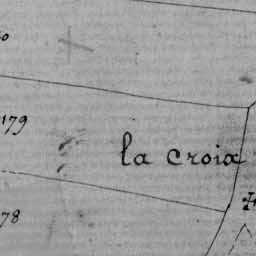 179
la croix
78